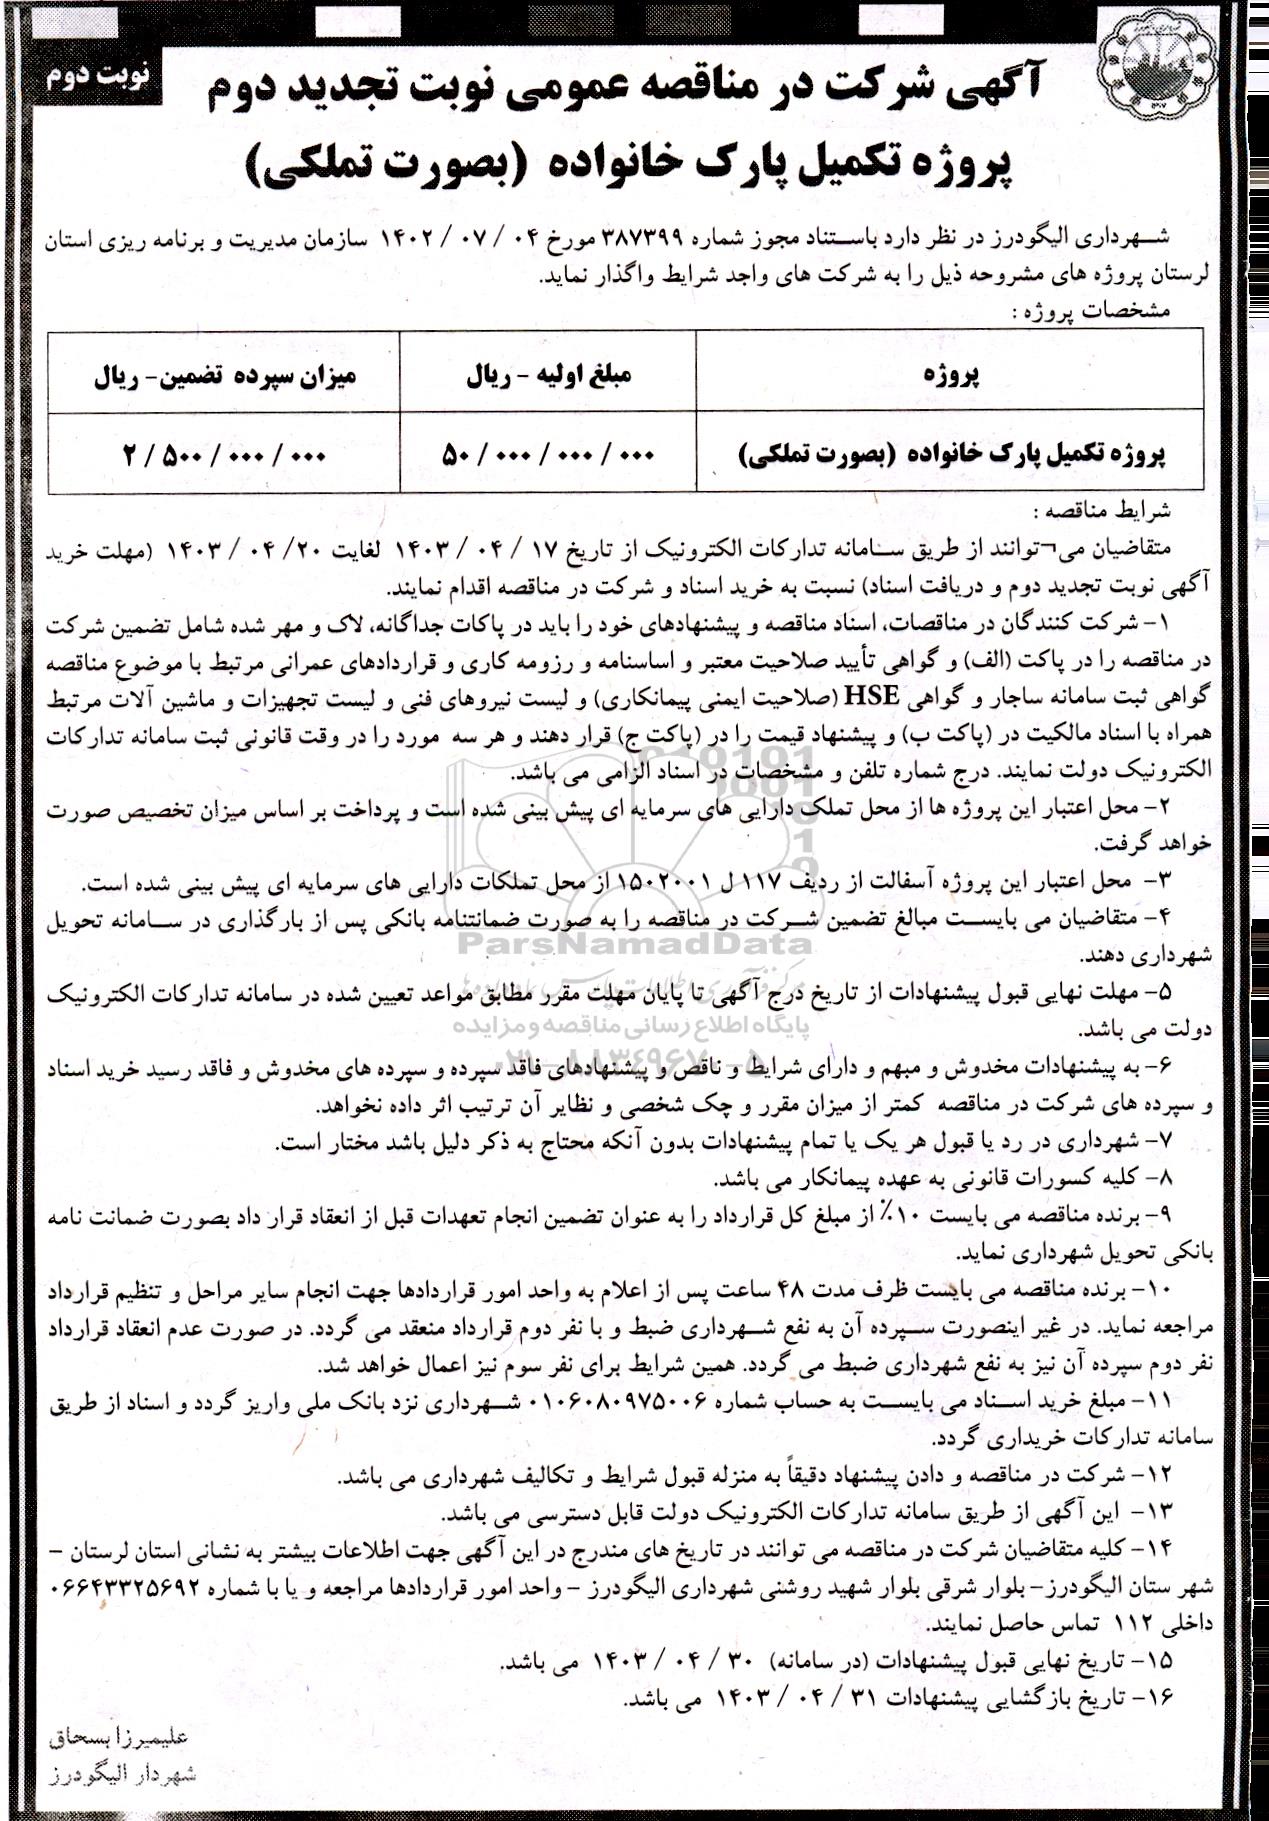 نوبت دوم
آگهی شرکت در مناقصه عمومی نوبت تجدید دوم
پروژه تکمیل پارک خانواده (بصورت تملکی)
شهرداری الیگودرز در نظر دارد باستناد مجوز شماره ۳۸۷۳۹۹ مورخ ۰۴ / ۰۷ / ۱۴۰۲ سازمان مدیریت و برنامه ریزی استان
لرستان پروژه های مشروحه ذیل را به شرکت های واجد شرایط واگذار نماید.
مشخصات پروژه :
پروژه مبلغ اولیه - ریال میزان سپرده تضمین- ریال
پروژه تکمیل پارک خانواده (بصورت تملکی) ۵۰ / ۰۰۰ / ۰۰۰ / ۰۰۰ ۲ / ۵۰۰ / ۰۰۰ / ۰۰۰
شرایط مناقصه :
متقاضیان می¬توانند از طریق سامانه تدارکات الکترونیک از تاریخ ۱۷ / ۰۴ / ۱۴۰۳ لغایت ۲۰ / ۰۴ / ۱۴۰۳ (مهلت خرید
آگهی نوبت تجدید دوم و دریافت اسناد) نسبت به خرید اسناد و شرکت در مناقصه اقدام نمایند.
۱- شرکت کنندگان در مناقصات، اسناد مناقصه و پیشنهادهای خود را باید در پاکات جداگانه، لاک و مهر شده شامل تضمین شرکت
در مناقصه را در پاکت (الف) و گواهی تأیید صلاحیت معتبر و اساسنامه و رزومه کاری و قراردادهای عمرانی مرتبط با موضوع مناقصه
گواهی ثبت سامانه ساجار و گواهی HSE (صلاحیت ایمنی پیمانکاری) و لیست نیروهای فنی و لیست تجهیزات و ماشین آلات مرتبط
همراه با اسناد مالکیت در (پاکت ب) و پیشنهاد قیمت را در (پاکت ج) قرار دهند و هر سه مورد را در وقت قانونی ثبت سامانه تدارکات
الکترونیک دولت نمایند. درج شماره تلفن و مشخصات در اسناد الزامی می باشد.
۲- محل اعتبار این پروژه ها از محل تملک دارایی های سرمایه ای پیش بینی شده است و پرداخت بر اساس میزان تخصیص صورت
خواهد گرفت.
۳- محل اعتبار این پروژه آسفالت از ردیف ۱۱۷ ل ۱۵۰۲۰۰۱ از محل تملکات دارایی های سرمایه ای پیش بینی شده است.
۴- متقاضیان می بایست مبالغ تضمین شرکت در مناقصه را به صورت ضمانتنامه بانکی پس از بارگذاری در سامانه تحویل
شهرداری دهند.
ParsNamadData
۵- مهلت نهایی قبول پیشنهادات از تاریخ درج آگهی تا پایان مهلت مقرر مطابق مواعد تعیین شده در سامانه تدارکات الکترونیک
دولت می باشد.
پایگاه اطلاع رسانی مناقصه و مزایده
۶- به پیشنهادات مخدوش و مبهم و دارای شرایط و ناقص و پیشنهادهای فاقد سپرده و سپرده های مخدوش و فاقد رسید خرید اسناد
و سپرده های شرکت در مناقصه کمتر از میزان مقرر و چک شخصی و نظایر آن ترتیب اثر داده نخواهد.
۷- شهرداری در رد یا قبول هر یک یا تمام پیشنهادات بدون آنکه محتاج به ذکر دلیل باشد مختار است.
۸- کلیه کسورات قانونی به عهده پیمانکار می باشد.
۹- برنده مناقصه می بایست ۱۰٪ از مبلغ کل قرارداد را به عنوان تضمین انجام تعهدات قبل از انعقاد قرار داد بصورت ضمانت نامه
بانکی تحویل شهرداری نماید.
۱۰- برنده مناقصه می بایست ظرف مدت ۴۸ ساعت پس از اعلام به واحد امور قراردادها جهت انجام سایر مراحل و تنظیم قرارداد
مراجعه نماید. در غیر اینصورت سپرده آن به نفع شهرداری ضبط و با نفر دوم قرارداد منعقد می گردد. در صورت عدم انعقاد قرارداد
نفر دوم سپرده آن نیز به نفع شهرداری ضبط می گردد. همین شرایط برای نفر سوم نیز اعمال خواهد شد.
۱۱- مبلغ خرید اسناد می بایست به حساب شماره ۰۱۰۶۰۸۰۹۷۵۰۰۶ شهرداری نزد بانک ملی واریز گردد و اسناد از طریق
سامانه تدارکات خریداری گردد.
۱۲- شرکت در مناقصه و دادن پیشنهاد دقیقاً به منزله قبول شرایط و تکالیف شهرداری می باشد.
۱۳- این آگهی از طریق سامانه تدارکات الکترونیک دولت قابل دسترسی می باشد.
۱۴- کلیه متقاضیان شرکت در مناقصه می توانند در تاریخ های مندرج در این آگهی جهت اطلاعات بیشتر به نشانی استان لرستان -
شهر ستان الیگودرز- بلوار شرقی بلوار شهید روشنی شهرداری الیگودرز - واحد امور قراردادها مراجعه و یا با شماره ۰۶۶۴۳۳۲۵۶۹۲
داخلی ۱۱۲ تماس حاصل نمایند.
۱۵- تاریخ نهایی قبول پیشنهادات (در سامانه) ۳۰ / ۰۴ / ۱۴۰۳ می باشد.
۱۶- تاریخ بازگشایی پیشنهادات ۳۱ / ۰۴ / ۱۴۰۳ می باشد.
علیمیرزا بسحاق
شهردار الیگودرز